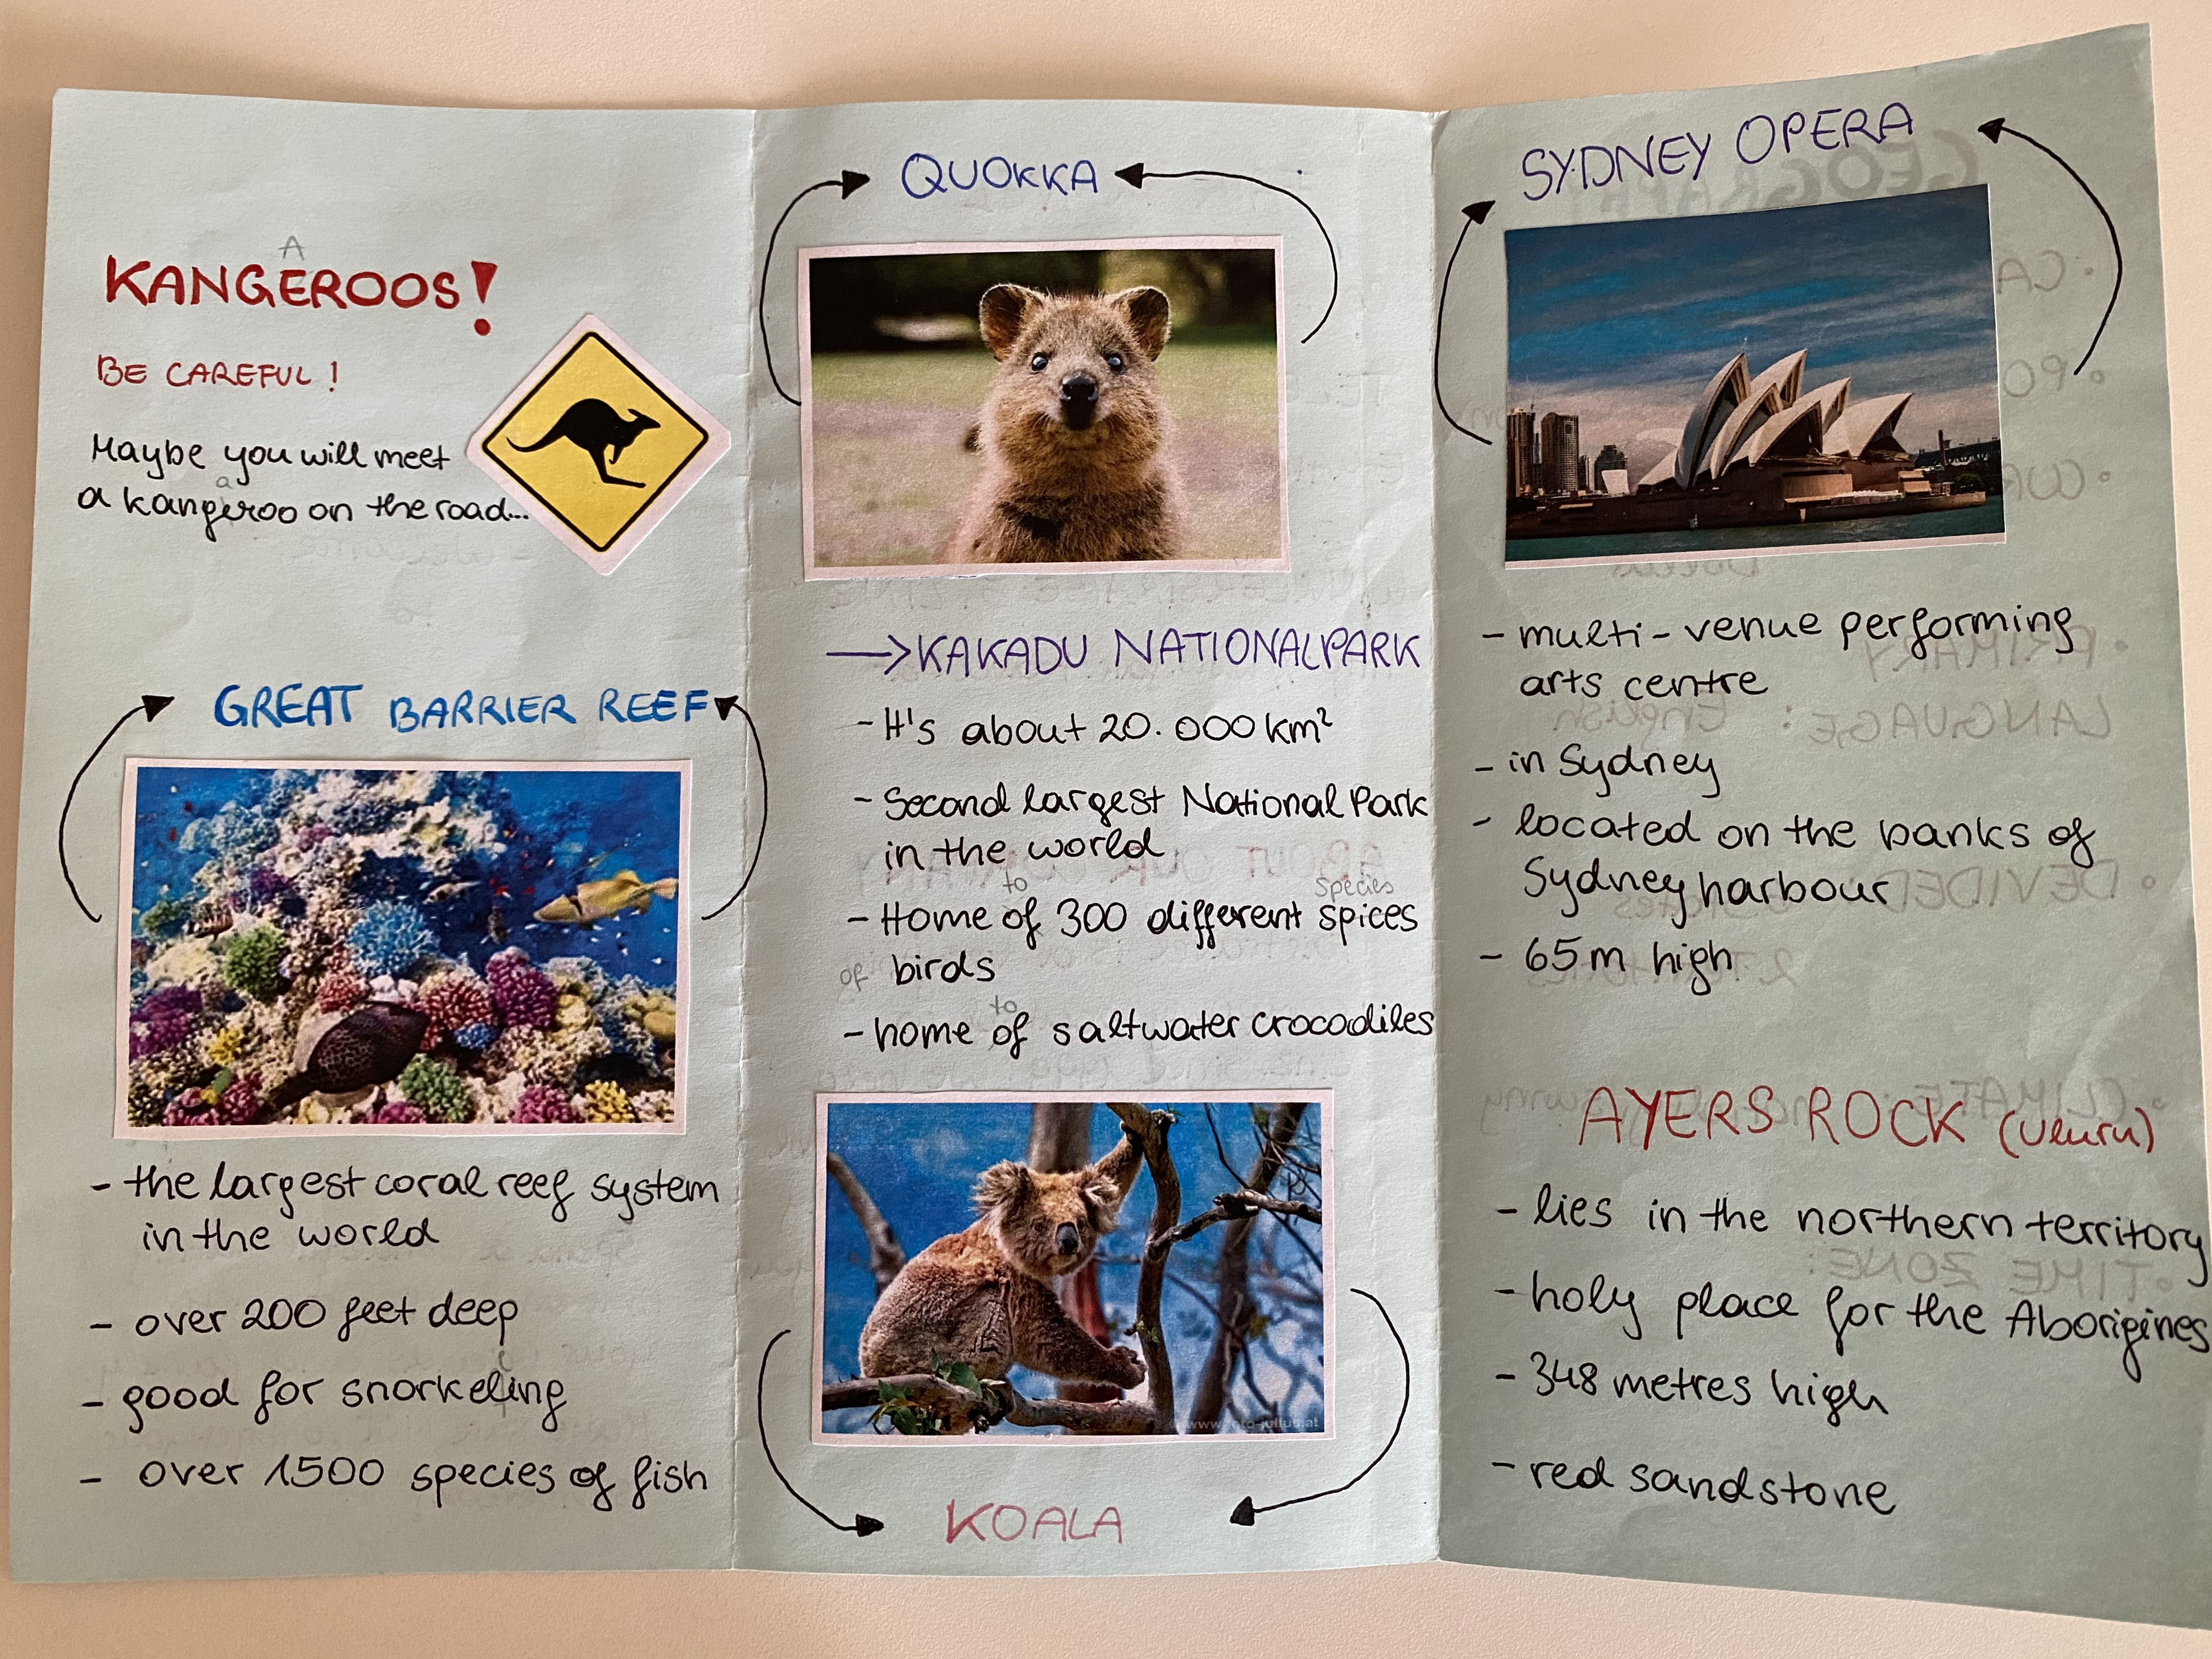 A
KANGEROOS!
BE CAREFUL!
Maybe you will meet
a
a kangeroo on the road...
GREAT BARRIER REEF
- the largest coral reef system
in the world
- over 200 feet deep
- good for snorkeling
- over 1500 species of fish
QUOKKA
→ KAKADU NATIONALPARK
- It's about 20.000 km²
- Second largest National Park
in the world
to species
- Home of 300 different spices
of birds
to
- home of saltwater crocodiles
www.foto-julius.at
KOALA
SYDNEY OPERA
- multi-venue performing
arts centre
- in Sydney
- located on the banks of
Sydney harbour
- 65m high
AYERS ROCK (Uluru)
- lies in the northern territory
- holy place for the Aborigines
- 348 metres high
- red sandstone